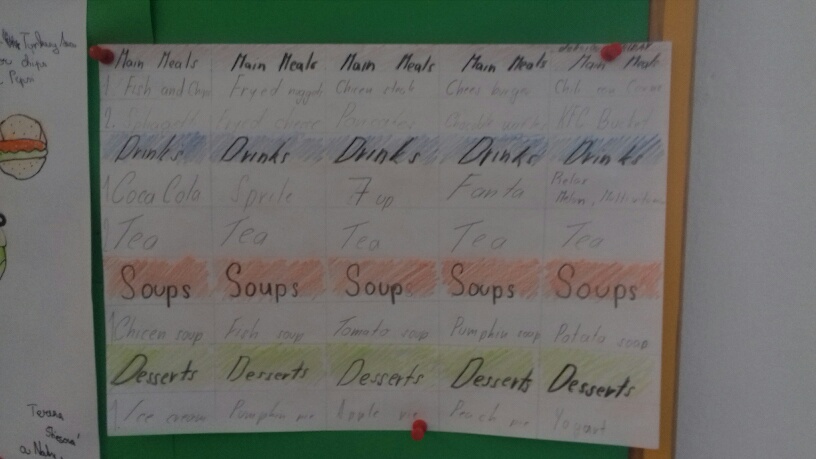 Main Meals Main Meals Main Meals Main Meals Main Meals
1. Fish and Chips Fryed nuggets Chicen steak Chees burger Chili con Carne
2. Spagetti Fryed cheese Pancakes KFC Bucket
Drinks Drinks Drinks Drinks Drinks
1 Coca Cola Sprite 7 up Fanta Relax
Melon, Multivitamin
Tea Tea Tea Tea Tea
Soups Soups Soups Soups Soups
1 Chicen soup Fish soup Tomato soup Pumpkin soup Potato soup
Desserts Desserts Desserts Desserts Desserts
1. Ice cream Pumpkin pie Apple pie Peach pie Yogurt
chips
Pepsi
Tereza